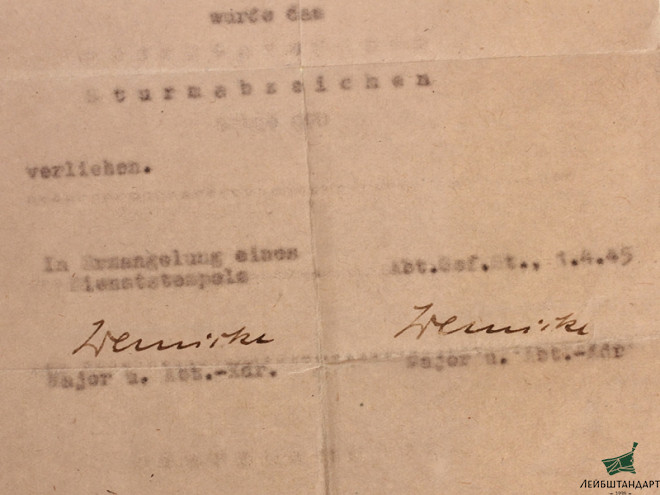 wurde das
Sturmabzeichen
verliehen.
In Ermangelung eines
Dienststempels
Abt.Gef.St., 1.4.45
Wernicke
Wernicke
Major u. Abt.-Kdr.
Major u. Abt.-Kdr
ЛЕЙБШТАНДАРТ